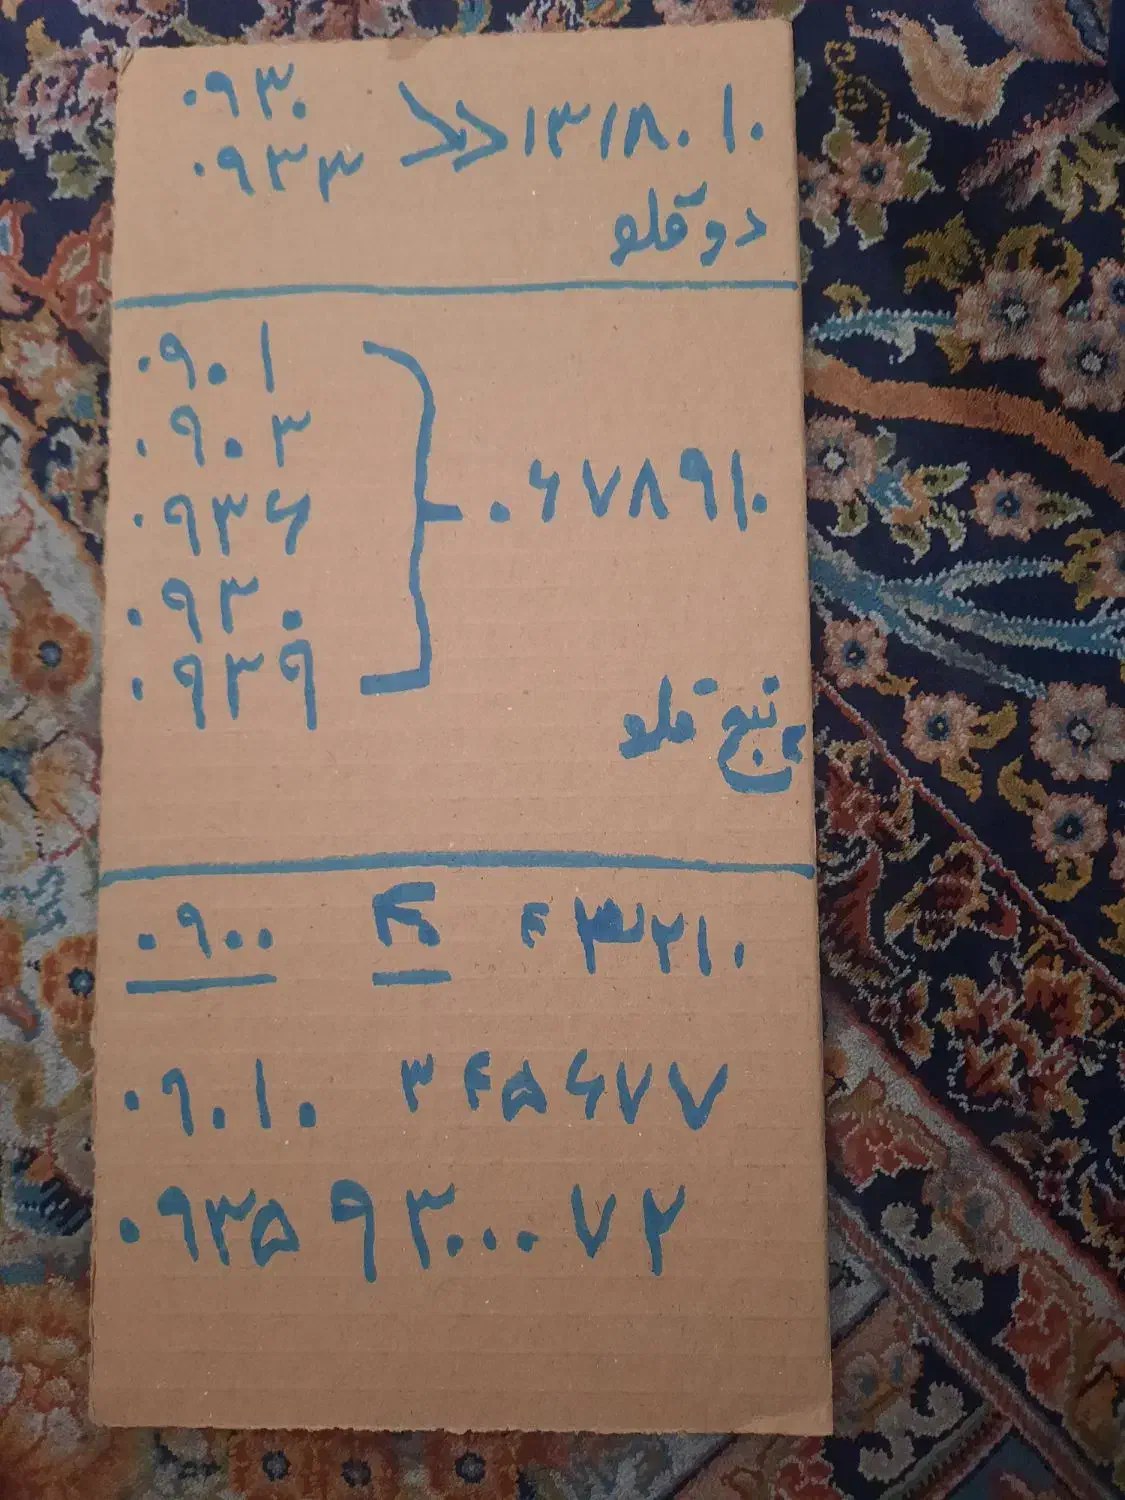 ۰۹۳۰
۰۹۳۳ >> ۱۳۱۸۰۱۰
دوقلو
۰۹۰۱
۰۹۰۳
۰۹۳۶
۰۹۳۰
۰۹۳۹
} ۰۶۷۸۹۱۰
پنج قلو
۰۹۰۰ ۴۳۲۱۰
۰۹۰۱۰ ۳۴۵۶۷۷
۰۹۳۵ ۹۳۰۰۰۷۲